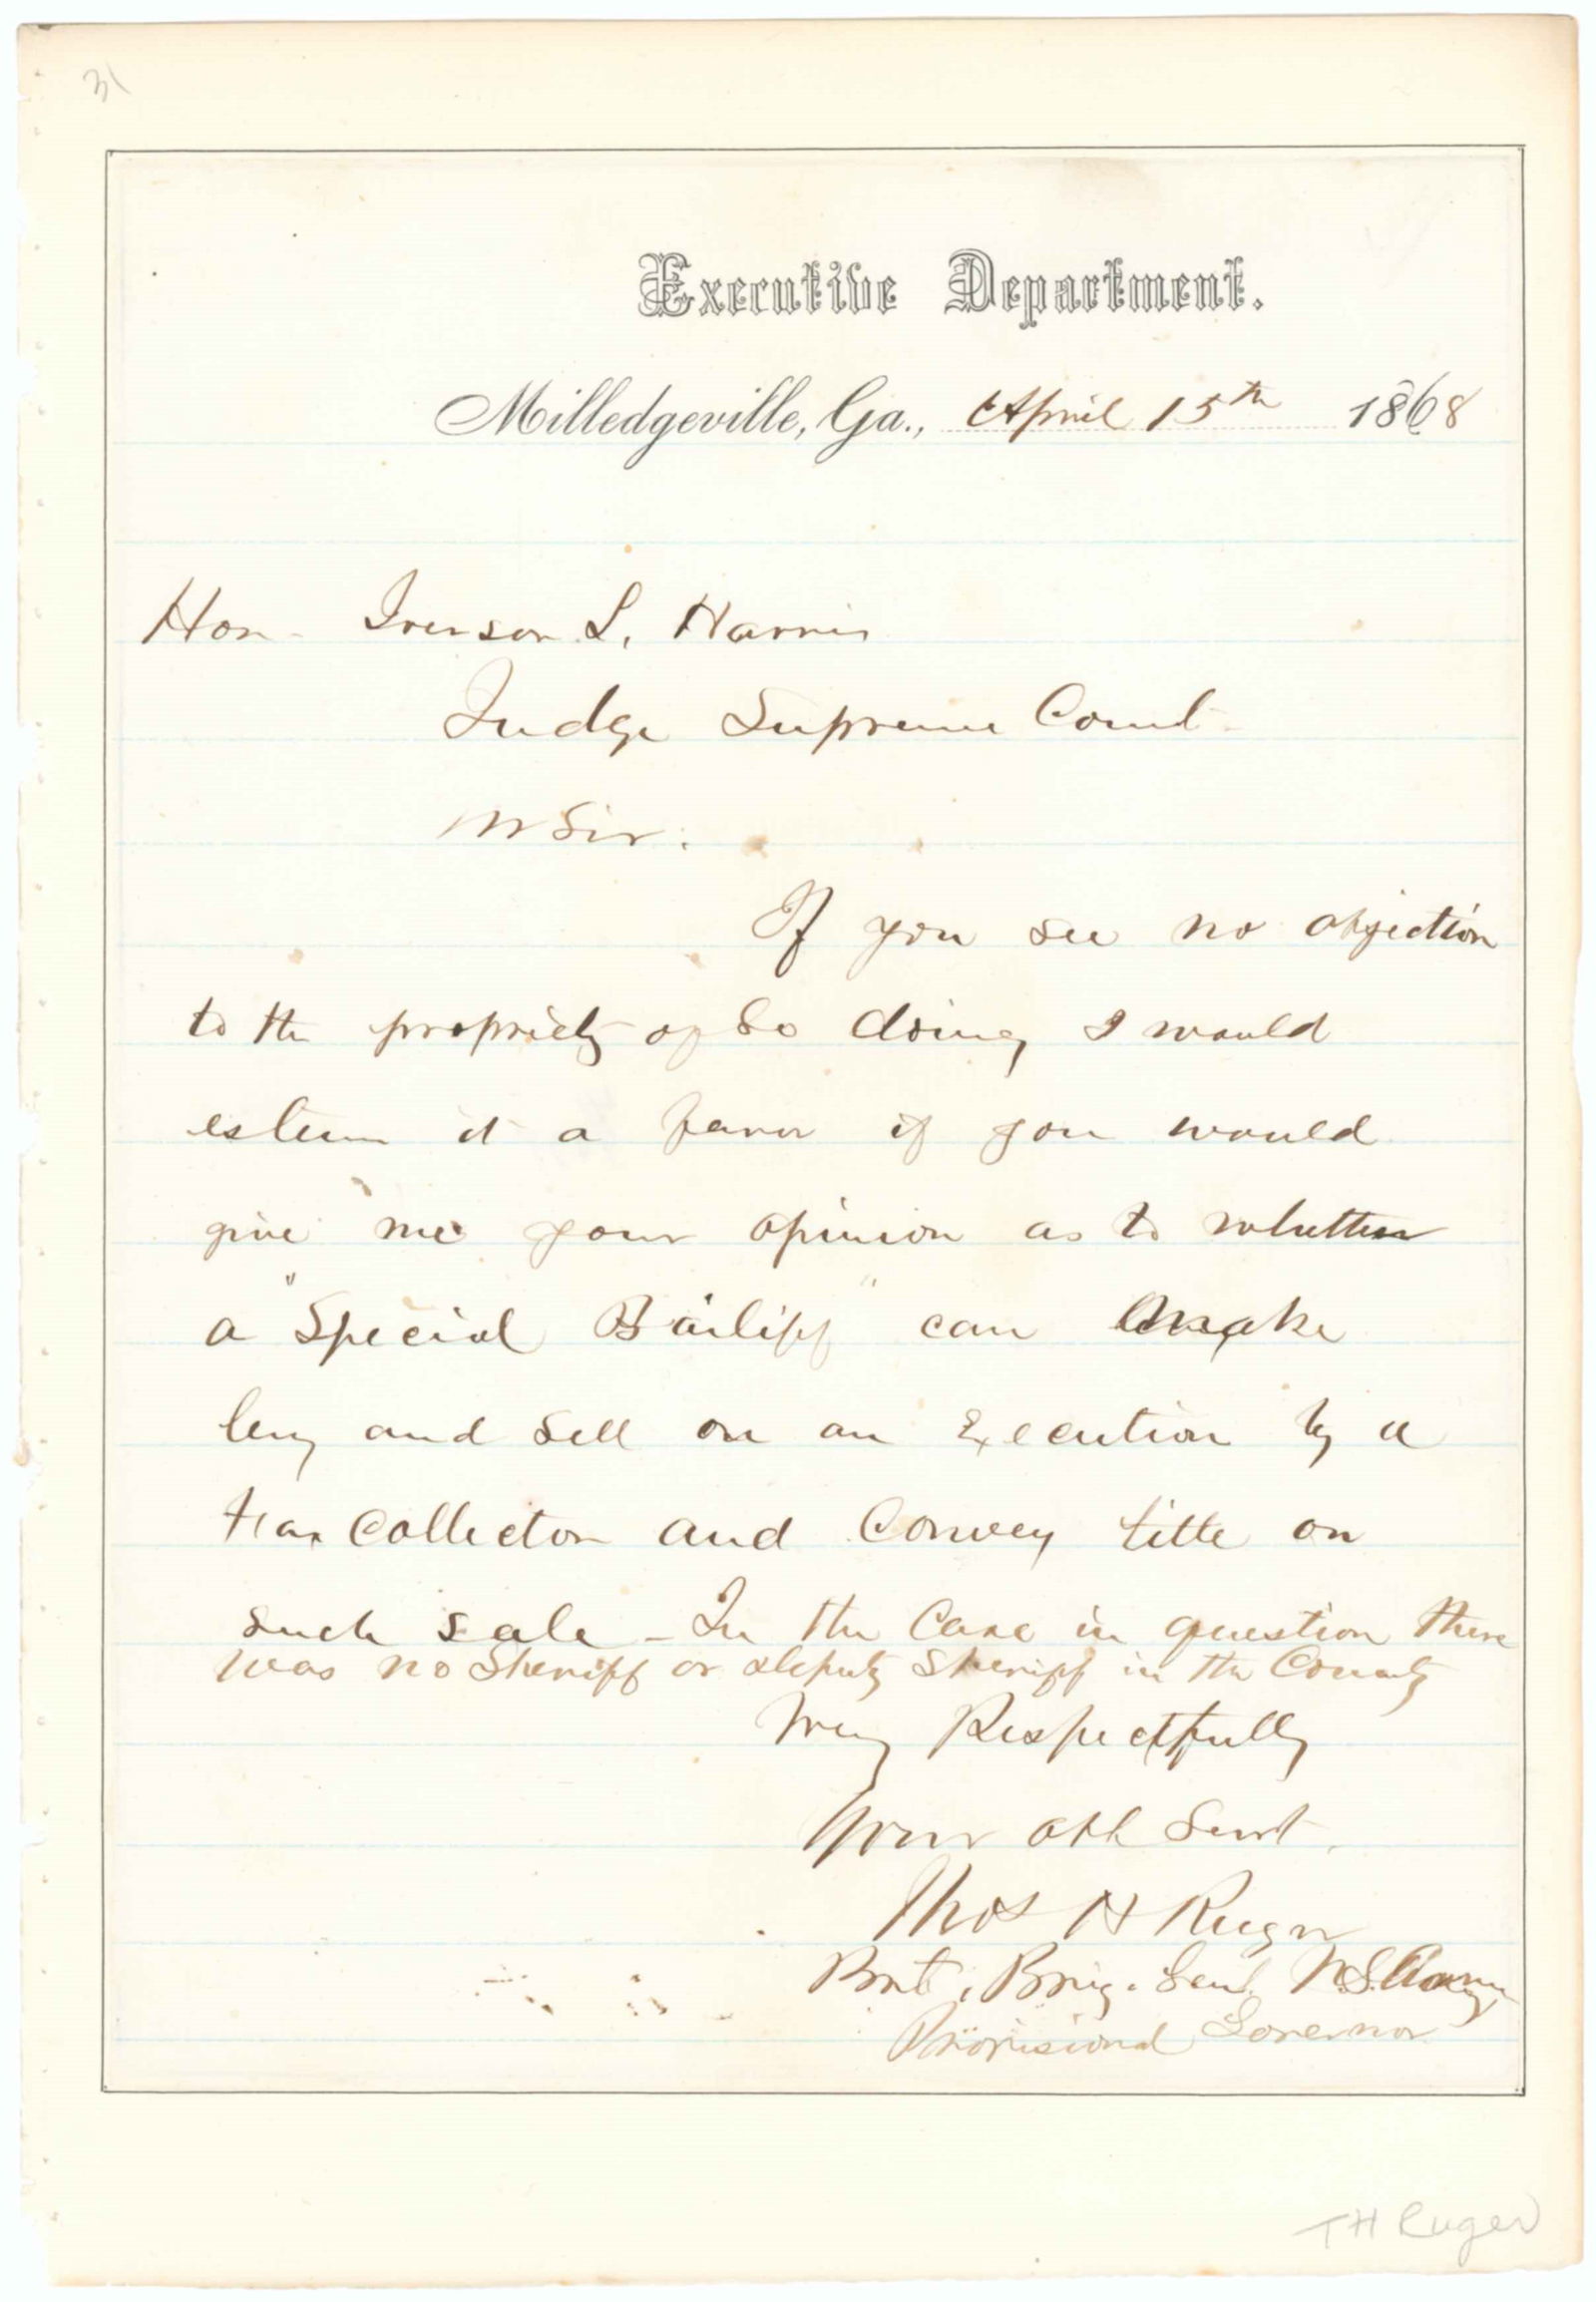 31
Executive Department.
Milledgeville, Ga., April 15th 1868
Hon. Iverson L. Harris
Judge Supreme Court
Sir:
If you see no objection
to the propriety of so doing, I would
esteem it a favor if you would
give me your opinion as to whether
a "Special Bailiff" can make
levy and sell on an Execution by a
tax Collector and Convey title on
such sale - In the Case in question there
was no Sheriff or deputy Sheriff in the County
Very Respectfully
Your obt Servt.
Thos H Ruger
Bvt. Brig. Genl. U.S. Army
Provisional Governor
TH Ruger